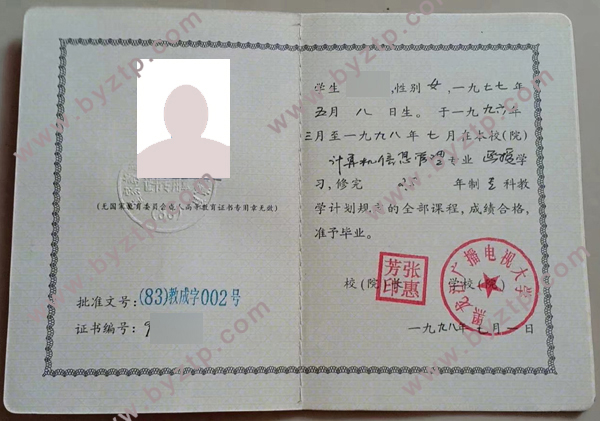 (无国家教育委员会成人高等教育证书专用章无效)
批准文号:(83)教成字002号
证书编号:9
学生 ,性别 女,一九七七年
五月 八 日生。于一九九六年
三月至一九九八年 七 月在本校(院)
计算机信息管理专业 函授学
习,修完 年制 专 科教
学计划规定的全部课程,成绩合格,
准予毕业。
校(院)长 学校(院)
张惠芳印
龙江广播电视大学
一九九八年 七 月 一 日
www.byztp.com